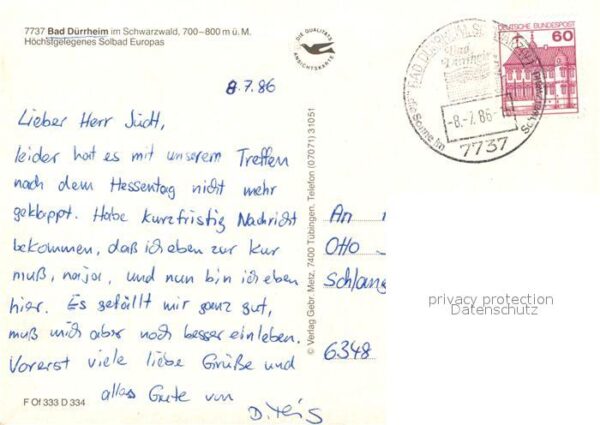 7737 Bad Dürrheim im Schwarzwald, 700-800 m ü. M.
Höchstgelegenes Solbad Europas
DIE QUALITÄTS
ANSICHTSKARTE
DEUTSCHE BUNDESPOST
60
-8.-7.86-
7737
8.7.86
Lieber Herr
leider hat es mit unserem Treffen
nach dem Hessentag nicht mehr
geklappt. Habe kurzfristig Nachricht
bekommen, daß ich eben zur Kur
muß, naja, und nun bin ich eben
hier. Es gefällt mir ganz gut,
muß mich aber noch besser einleben.
Vorerst viele liebe Grüße und
alles Gute von
© Verlag Gebr. Metz, 7400 Tübingen, Telefon (07071) 31051
An
Otto
Schlang
6348
privacy protection
Datenschutz
F Of 333 D 334